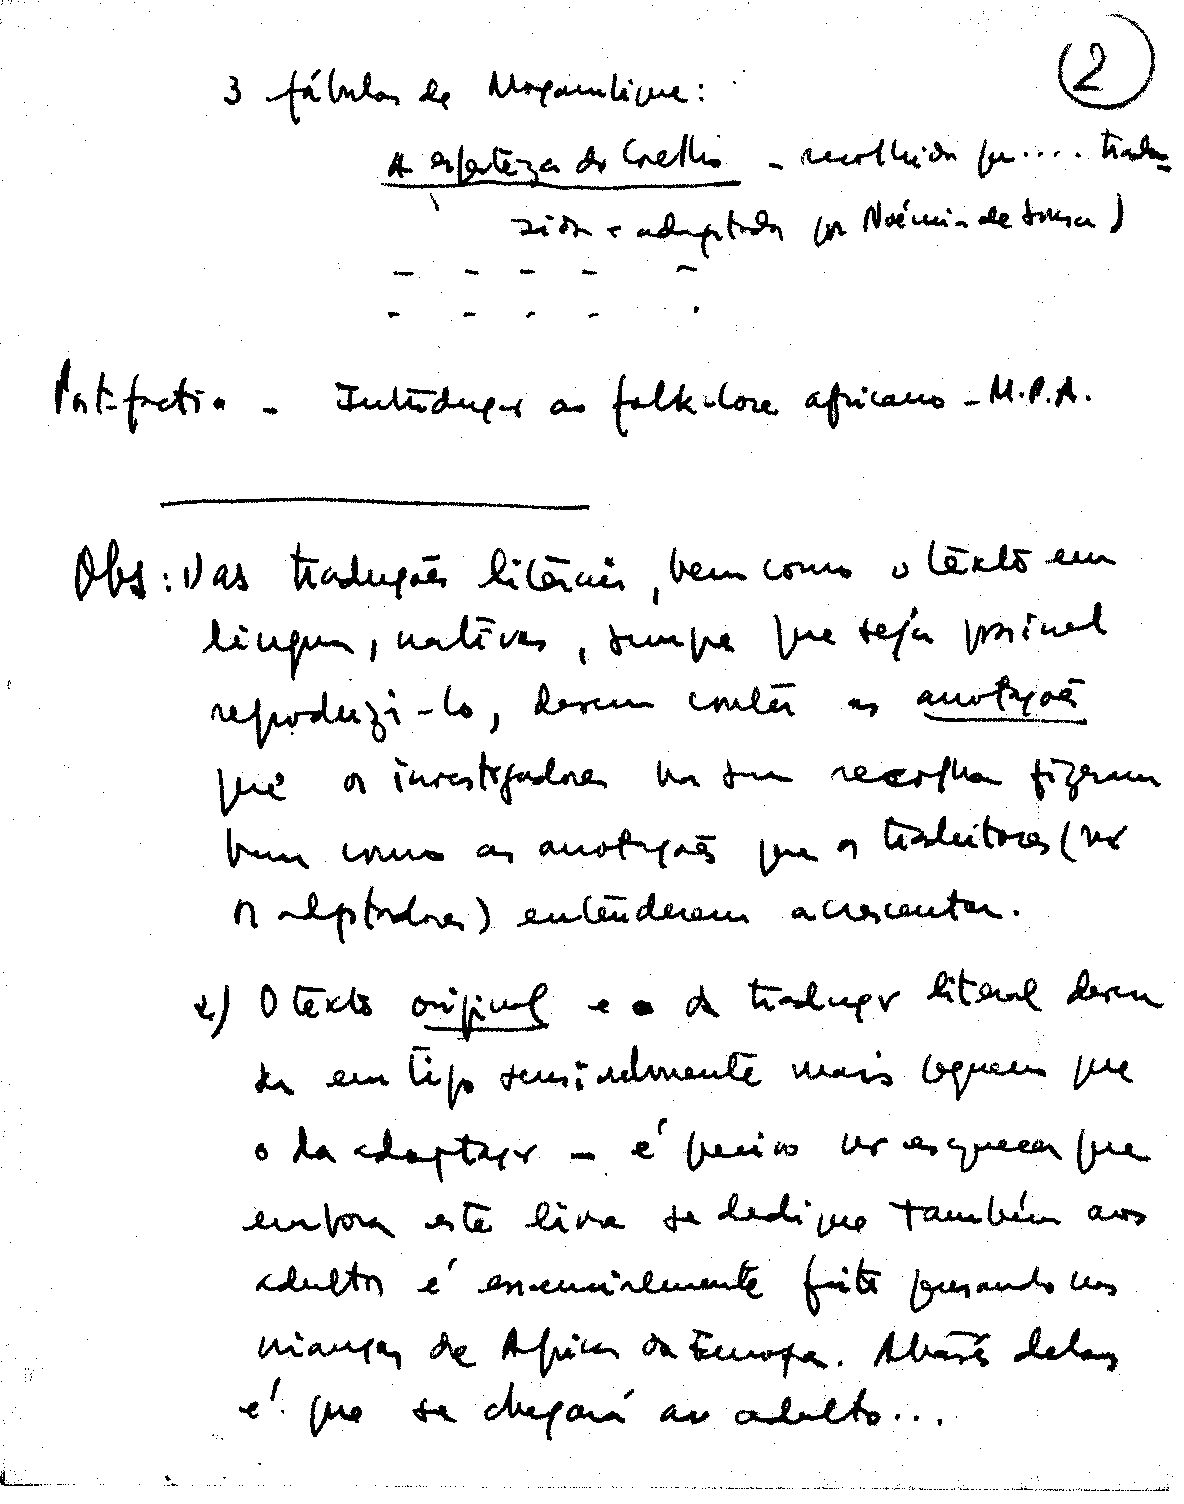 2
3 fábulas de Moçambique:
A esperteza do Coelho – recolhida por.... tradu-
zida e adaptada por Noémia de Sousa)
– – – – –
– – – – .
Post-facio – Introdução ao folk-lore africano – M.P.A.
Obs: 1) As traduções literais, bem como o texto em
línguas nativas, sempre que seja possível
reproduzi-lo, devem conter as anotações
que os investigadores na sua recolha fizeram
bem como as anotações que os tradutores (ou
os adaptadores) entenderem acrescentar.
2) O texto original e o da tradução literal devem
ser em tipo sensivelmente mais pequeno que
o da adaptação – é preciso não esquecer que
embora este livro se dedique também aos
adultos é essencialmente feito pensando nas
crianças de África e da Europa. Através delas
é que se chegará ao adulto...